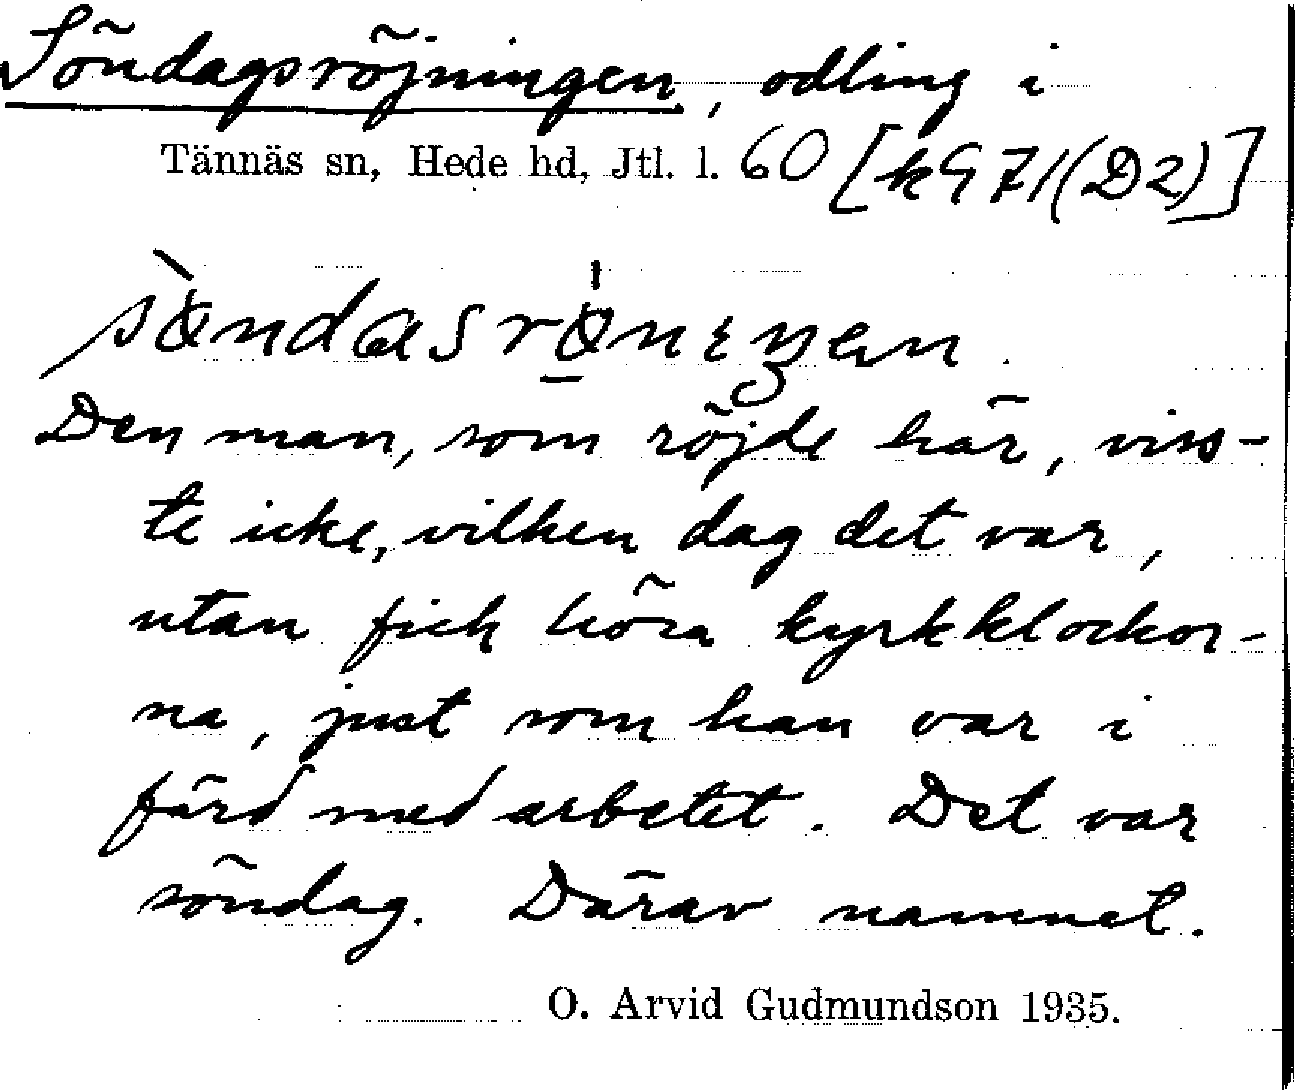 Söndagsröjningen, odling i
Tännäs sn, Hede hd, Jtl. l. 60 [k971(D2)]
Den man, som röjde här, viss-
te icke, vilken dag det var,
utan fick höra kyrkklockor-
na, just som han var i
färd med arbetet. Det var
söndag. Därav namnet.
O. Arvid Gudmundson 1935.